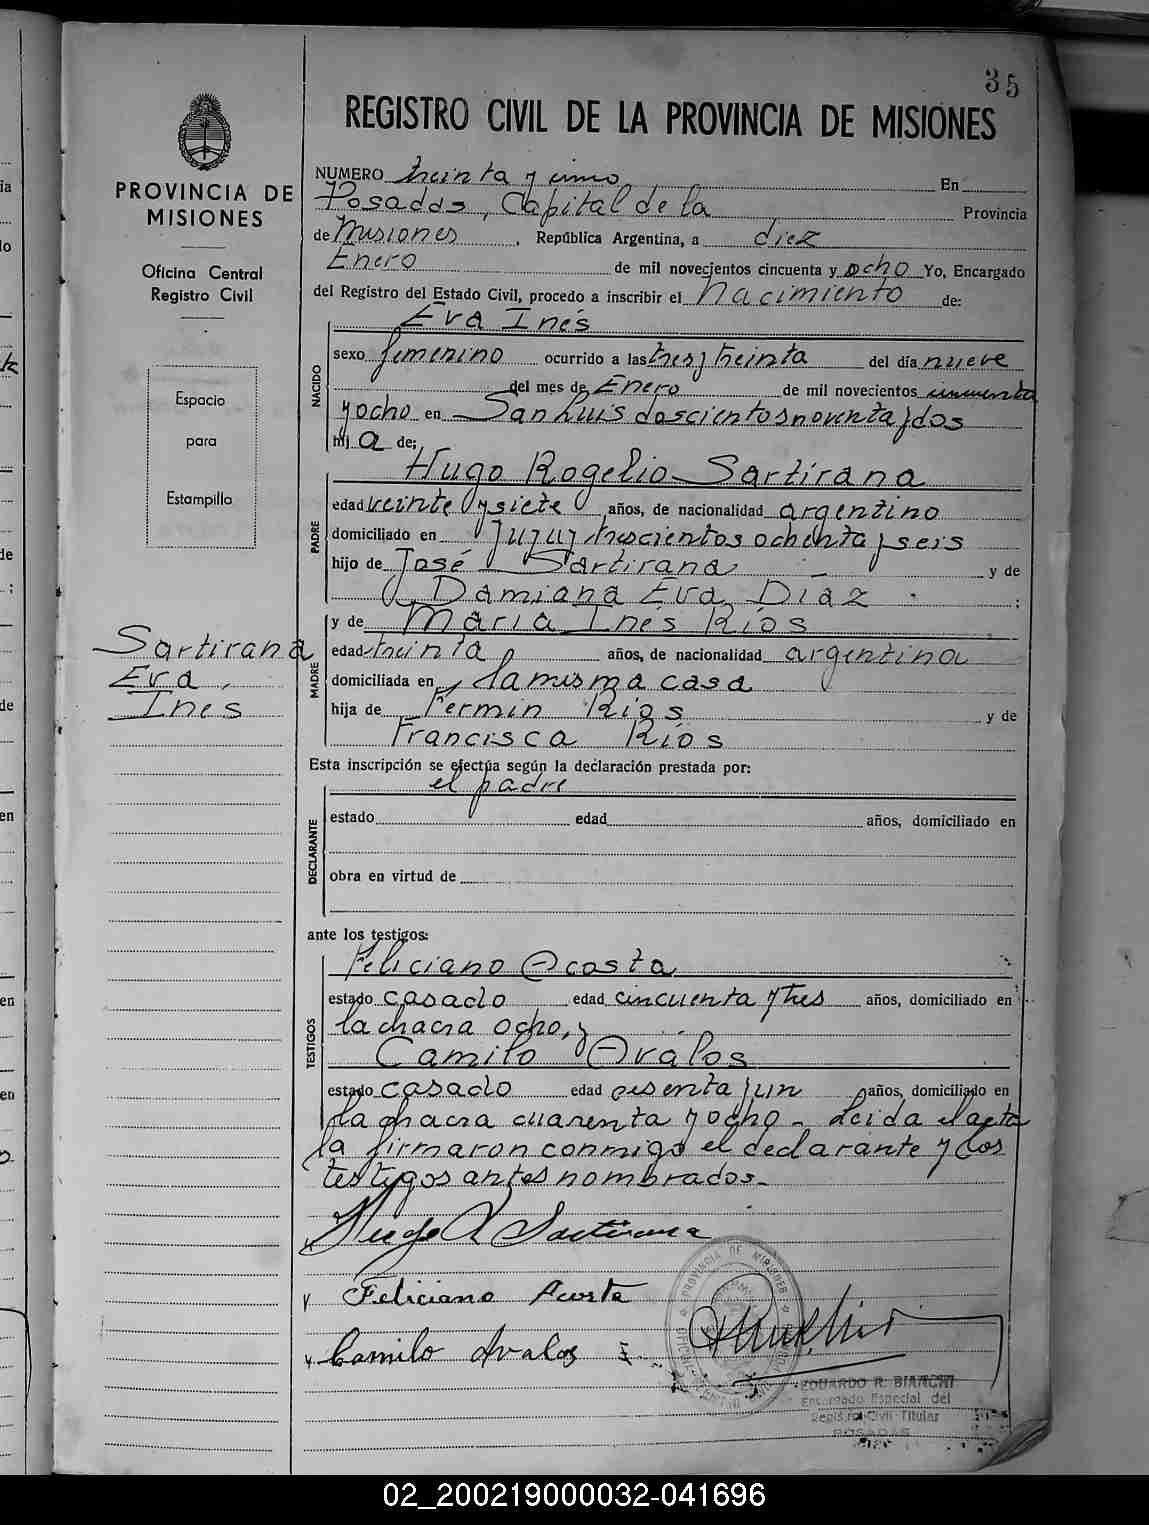 35
REGISTRO CIVIL DE LA PROVINCIA DE MISIONES
PROVINCIA DE
MISIONES
Oficina Central
Registro Civil
Espacio
para
Estampilla
Sartirana
Eva
Ines
NUMERO treinta y cinco En
Posadas, Capital de la Provincia
de Misiones, República Argentina, a diez
Enero de mil novecientos cincuenta y ocho Yo, Encargado
del Registro del Estado Civil, procedo a inscribir el nacimiento de:
Eva Inés
NACIDO
sexo femenino ocurrido a las tres y treinta del día nueve
del mes de Enero de mil novecientos cincuenta
y ocho en San Luis doscientos noventa y dos
hij a de:
Hugo Rogelio Sartirana
PADRE
edad veinte y siete años, de nacionalidad argentino
domiciliado en Jujuy trescientos ochenta y seis
hijo de José Sartirana y de
Damiana Eva Díaz ;
y de María Inés Ríos
MADRE
edad treinta años, de nacionalidad argentina
domiciliada en la misma casa
hija de Fermin Rios y de
Francisca Ríos
Esta inscripción se efectúa según la declaración prestada por:
el padre
DECLARANTE
estado edad años, domiciliado en
obra en virtud de
ante los testigos:
Feliciano Acosta
TESTIGOS
estado casado edad cincuenta y tres años, domiciliado en
la chacra ocho, y
Camilo Ovalos
estado casado edad sesenta y un años, domiciliado en
la chacra cuarenta y ocho - Leida el acta
la firmaron conmigo el declarante y los
testigos antes nombrados.-
Hugo R Sartirana
Feliciano Acosta
Camilo Avalos
PROVINCIA DE MISIONES
EDUARDO R. BIANCHI
Encargado Especial del
Registro Civil Titular
POSADAS
02_200219000032-041696